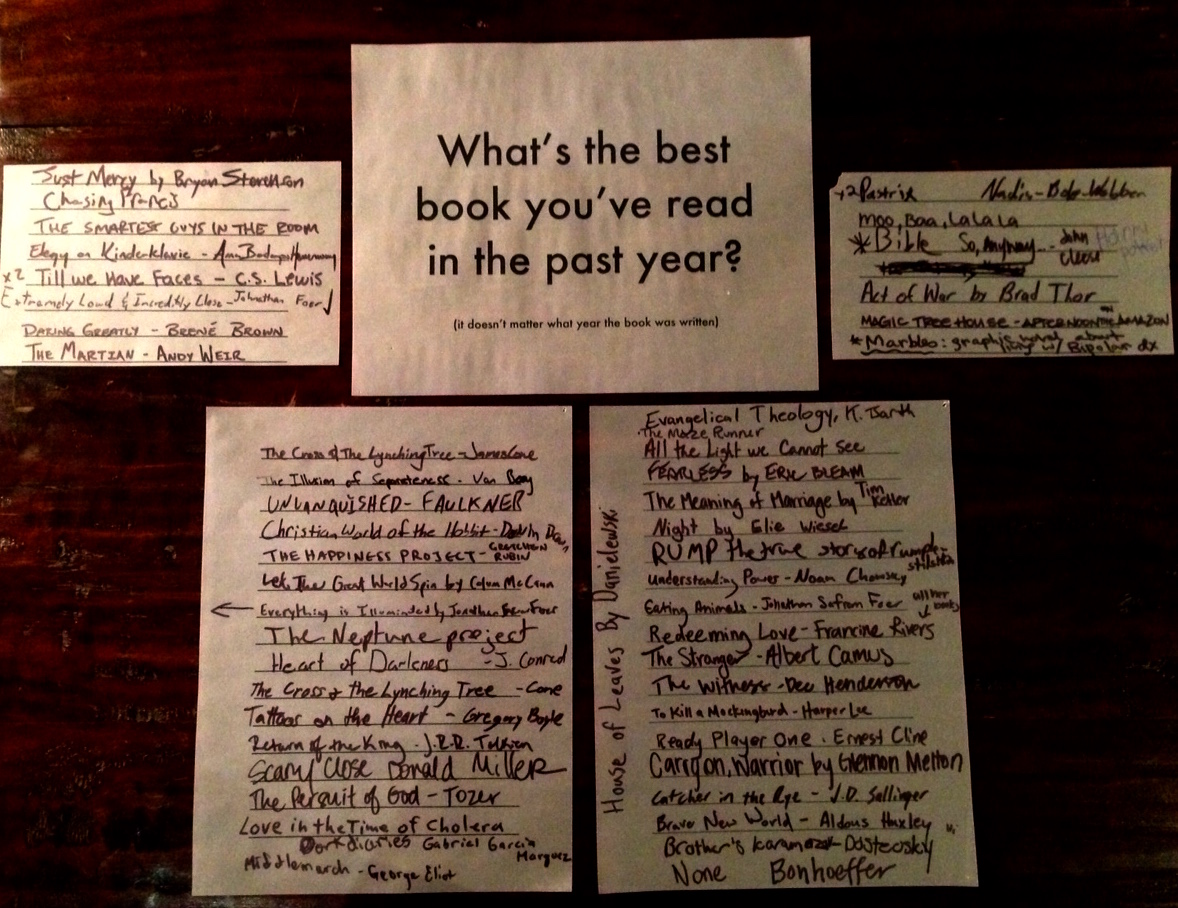 What's the best
book you've read
in the past year?
(it doesn't matter what year the book was written)
Just Mercy by Bryan
Chasing Francis
THE SMARTEST GUYS IN THE ROOM
Elegy on Kinderklavie -
x2 Till we Have Faces - C.S. Lewis
Extremely Loud & Incredibly Close - Johnathan Foer
DARING GREATLY - BRENÉ BROWN
THE MARTIAN - ANDY WEIR
+2 Pastrix Nadia - Bolz-Webber
Moo, Baa, La La La
* Bible So, Anyway... John Cleese
Harry Potter
Act of War by Brad Thor
MAGIC TREE HOUSE - AFTERNOON ON THE AMAZON
* Marbles: graphic novel about
living w/ Bipolar dx
The Cross & The Lynching Tree - James Cone
The Illusion of Separateness - Van Booy
UNVANQUISHED - FAULKNER
Christian World of the Hobbit - Devin
THE HAPPINESS PROJECT - GRETCHEN RUBIN
Let The Great World Spin by Colum McCann
← Everything is Illuminated by Jonathan Foer
The Neptune project
Heart of Darkness - J. Conrad
The Cross & the Lynching Tree - Cone
Tattoos on the Heart - Gregory Boyle
Return of the King - J.R.R. Tolkien
Scary Close Donald Miller
The Persuit of God - Tozer
Love in the Time of Cholera
Dork diaries Gabriel Garcia Marquez
Middlemarch - George Eliot
House of Leaves By Danielewski
Evangelical Theology, K. Barth
The Maze Runner
All the Light we Cannot see
FEARLESS by ERIC BLEAM
The Meaning of Marriage by Tim Keller
Night by Elie Wiesel
RUMP the true story of Rumple-
stilskin
Understanding Power - Noam Chomsky
Eating Animals - Jonathan Safran Foer
all her books
Redeeming Love - Francine Rivers
The Stranger - Albert Camus
The Witness - Dee Henderson
To Kill a Mockingbird - Harper Lee
Ready Player One - Ernest Cline
Carry on, Warrior by Glennon Melton
Catcher in the Rye - J.D. Sallinger
Brave New World - Aldous Huxley
Brother's Karamazov - Dostevsky
None Bonhoeffer